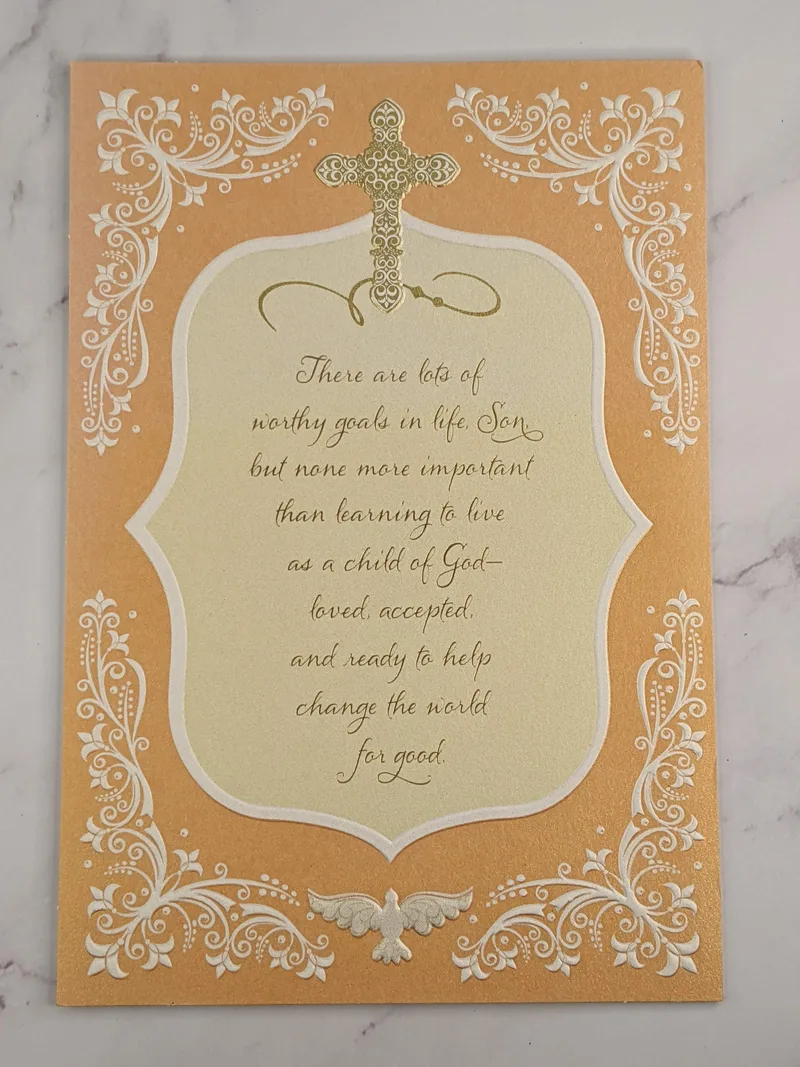 There are lots of
worthy goals in life, Son,
but none more important
than learning to live
as a child of God—
loved, accepted,
and ready to help
change the world
for good.